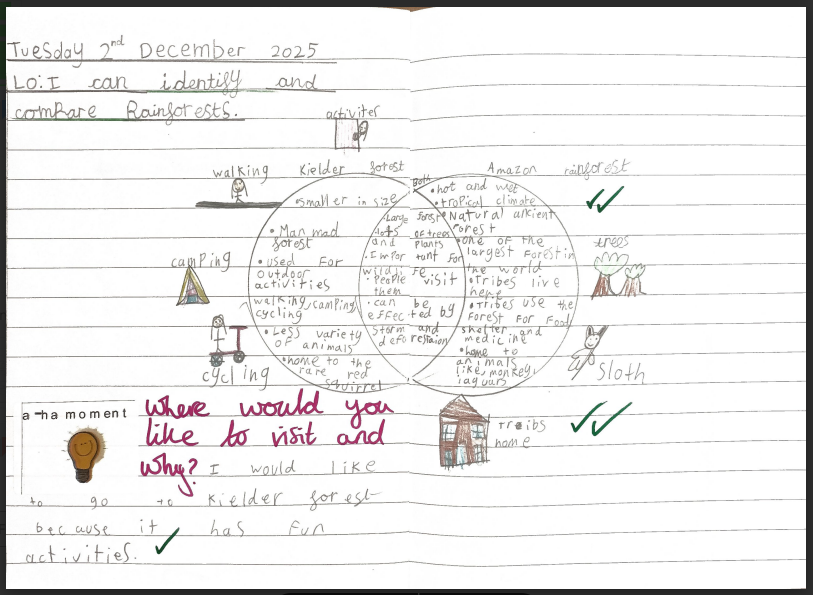 Tuesday 2nd December 2025
LO: I can identify and
compare Rainforests.
activites
walking
Kielder forest
• smaller in size
• Man mad
forest
• used for
outdoor
activities
walking, camping,
cycling
• Less variety
of animals
• home to the
rare red
squirrel
camping
cycling
Both
• Large forest
• lots of trees
and plants
• Important for
wildlife
• People visit
them
• can be
effected by
storm and
deforestaion
Amazon rainforest
• hot and wet
• tropical climate
• Natural ancient
forest
• one of the
largest forest in
the world
• Tribes live
here
• Tribes use the
forest for food,
shelter, and
medicine
• home to
animals
like, monkey,
jaguars
trees
Sloth
Treibs
home
a-ha moment
Where would you
like to visit and
why? I would like
to go to Kielder forest
because it has fun
activities.